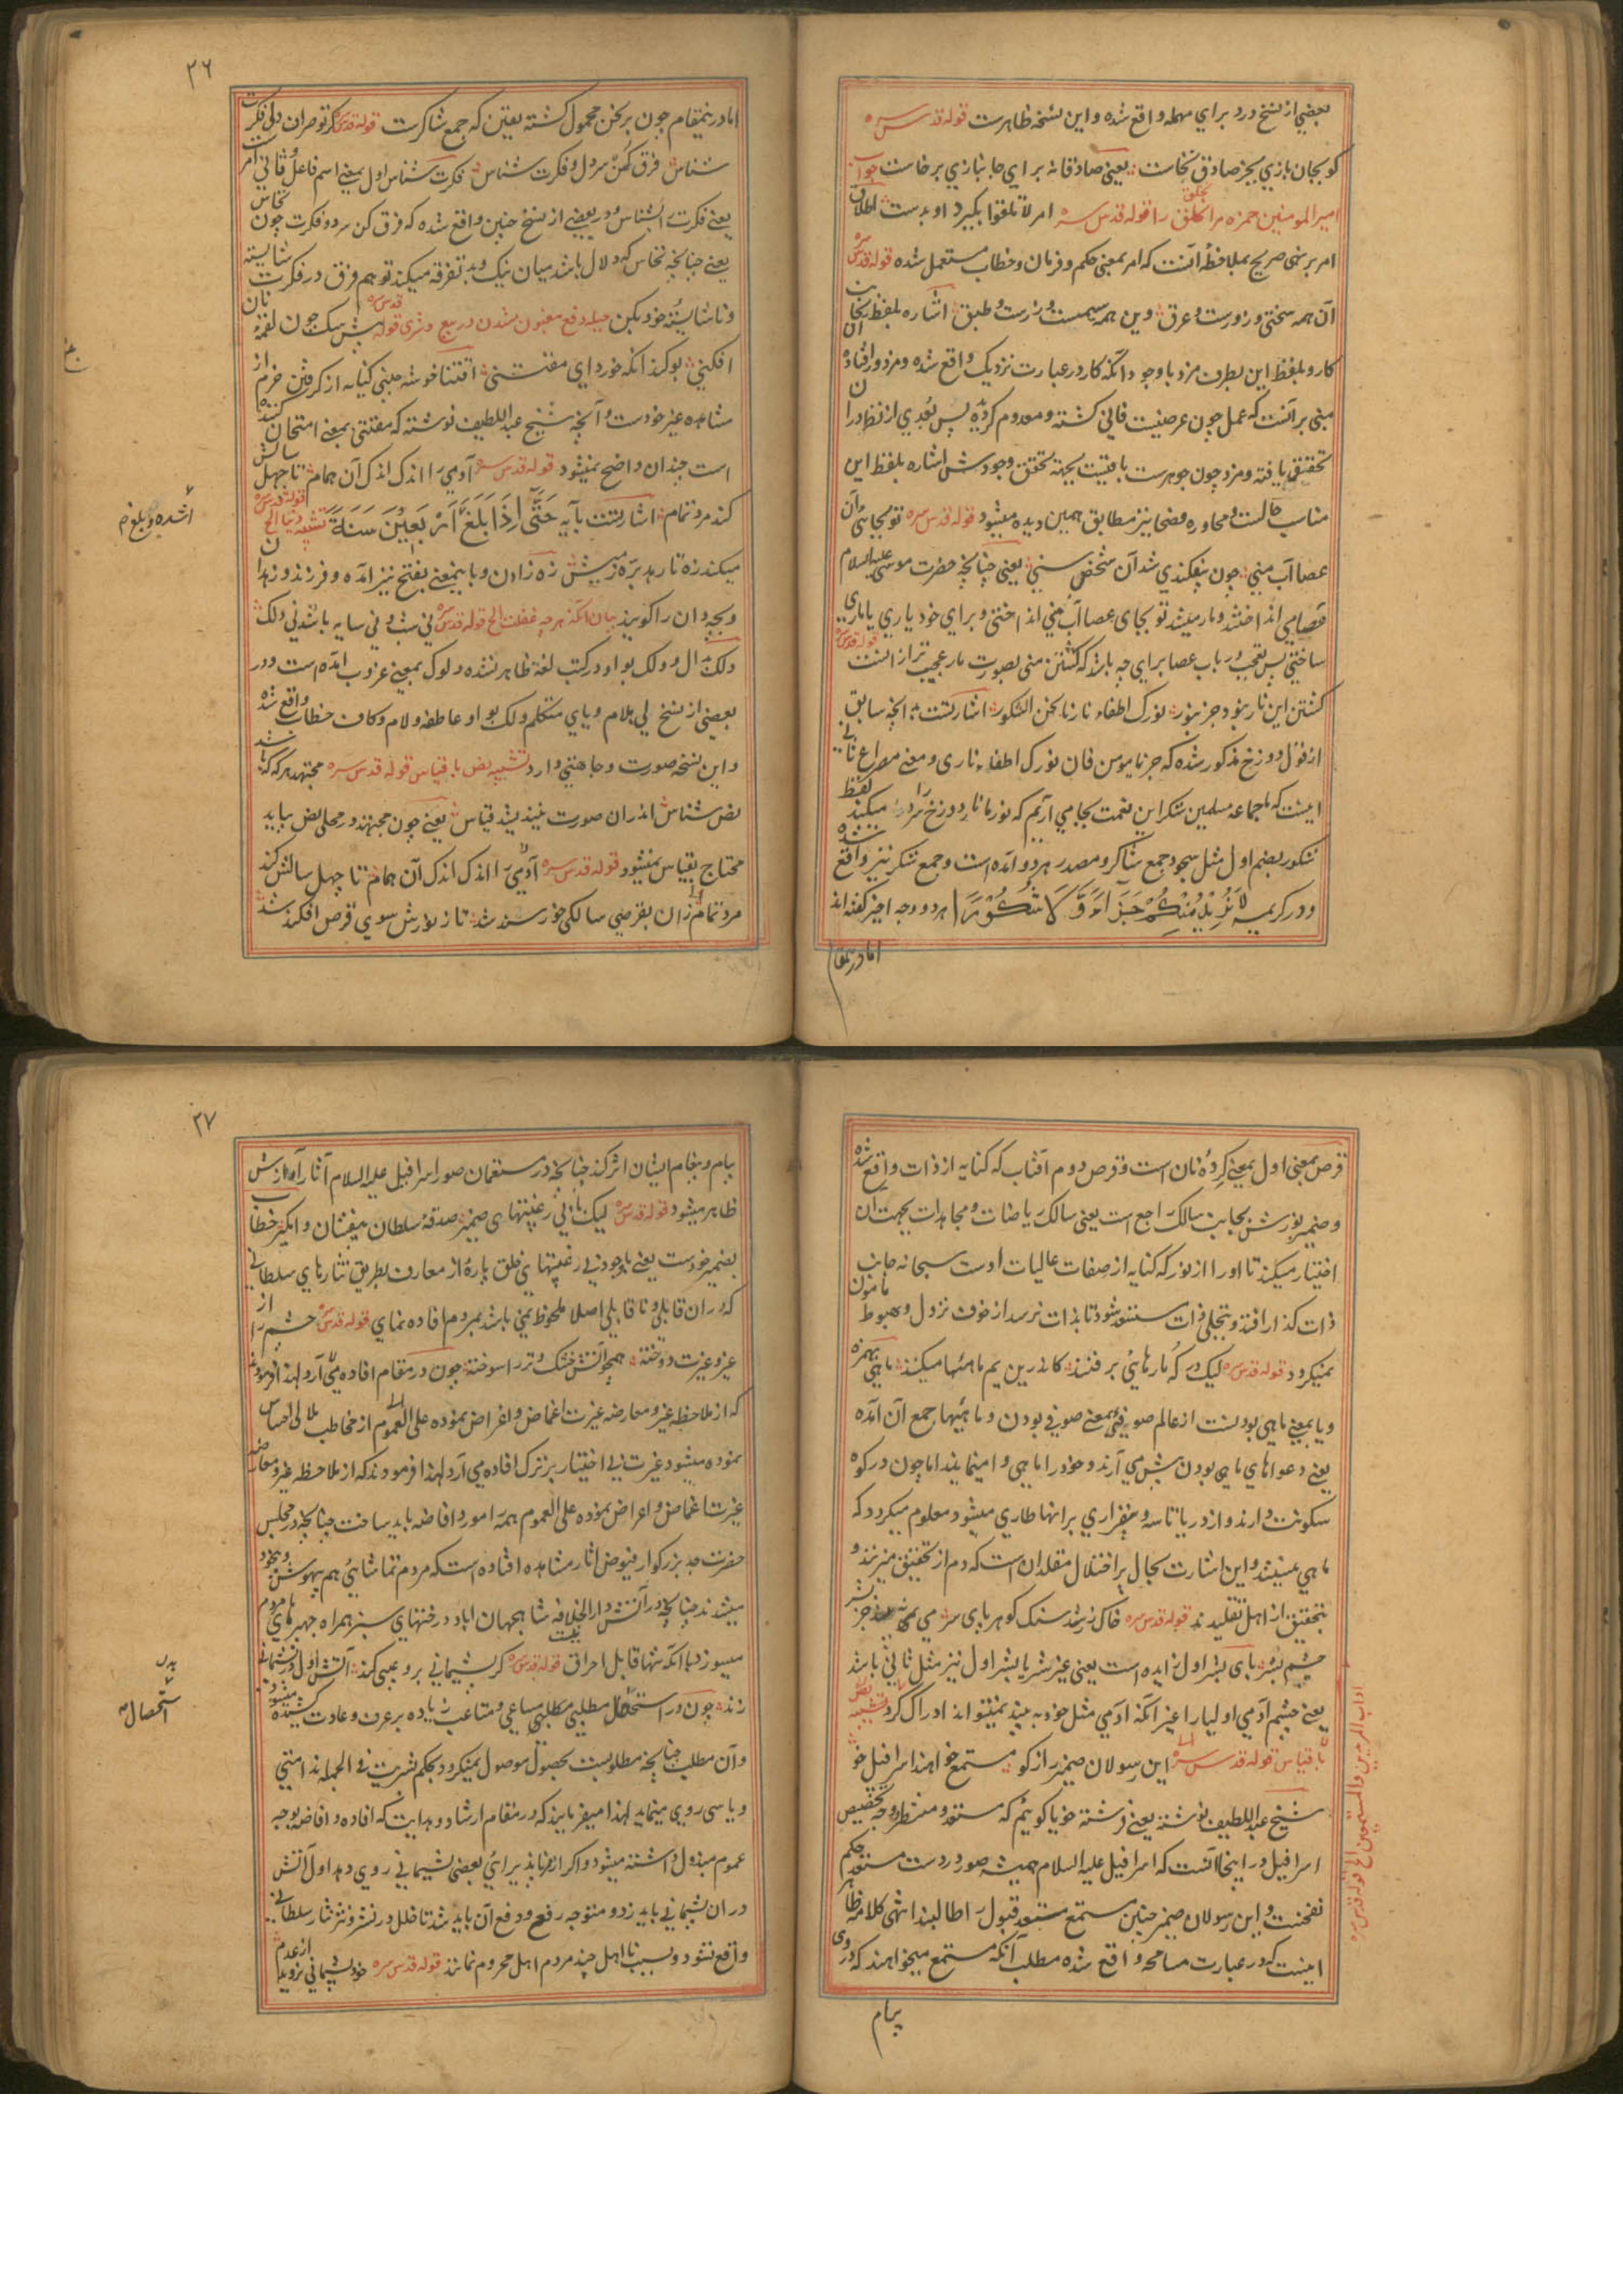 بعضي از نسخ درد براي مهمله واقع شده و اين نسخه ظاهرست قوله قدس سره
كو بجان بازي بجز صادق نخاست يعني صادقانه براي جانبازي برخاست جواب
امير المومنين حمزه مر خلق را قوله قدس سره امر لا تلقوا بگيرد او بدست اطلاق
امر بر نهي صريح بملاحظه آنست كه امر بمعني حكم و فرمان و خطاب مستعمل شده قوله قدس سره
آن همه سختي و زورست و عرق وين همه سيمست و زرست و طبق اشاره بلفظ آن بجانب
كار و بلفظ اين بطرف مزد باوجود آنكه كار در عبارت نزديك واقع شده و مزد دور افتاده
مبني بر آنست كه عمل چون عرضيست فاني گشته و معدوم گرديده پس بعدي از نظر را
تحقيق يافته و مزد چون جوهرست باقيست بجهة تحقق وجودش اشاره بلفظ اين
مناسب حالست و محاوره فصحا نيز مطابق همين ديده ميشود قوله قدس سره تو بجاي آن
عصا آب مني چون بيفكندي شد آن شخص سني يعني چنانچه حضرت موسي عليه السلام
عصا مي انداختند و مار ميشد تو بجاي عصا آب مني انداختي و براي خود ياري يا ماري
ساختي پس تعجب در باب عصا براي چه باشد كه گشتن مني بصورت مار عجيب تر از انست قوله قدس سره
كشتن اين نار نبود جز بنور نورك اطفاء نارنا نحن الشكور اشارتست بآنچه سابق
از قول دوزخ مذكور شده كه جز يا مومن فان نورك اطفاء ناري و معني مصراع ثاني
اينست كه ما جماعه مسلمين شكر اين نعمت بجا مي آريم كه نور ما نار دوزخ را سرد ميكند لفظ
شكور بضم اول مثل سجود جمع شاكر و مصدر هر دو آمده است و جمع شكر نيز واقع شده
و در كريمه لا نريد منكم جزاء و لا شكورا هر دو وجه اخير گفته اند
اما درينمقام
٢٦
اما درينمقام چون بر نحن محمول گشته يقين كه جمع شاكرست قوله قدس سره
شناس فرق كن سر دل و فكرت شناس فكرت شناس اول بمعني اسم فاعل و ثاني امر
يعني فكرت را بشناس و در بعضي از نسخ چنين واقع شده كه فرق كن سر دو فكرت چون نخاس
يعني چنانچه نخاس كه دلال باشد ميان نيك و بد تفرقه ميكند تو هم فرق در فكرت شايسته
و ناشايسته خود بكن حيله دفع مغبون شدن در بيع و شري قوله قدس سره پيش سگ چون لقمه نان
افكني بو كند آنگه خورد اي مقتني اقتنا خوشه چيني كنايه از گرفتن خرم از
مشاهده غير خودست و آنچه شيخ عبد اللطيف نوشته كه مقتني بمعني امتحان كننده
است چندان واضح نميشود قوله قدس سره آدمي را اندك اندك آن همام تا چهل سالش
كند مرد تمام اشارتست بآيه حتى اذا بلغ اربعين سنة قوله قدس سره
ميكند زه تا رهد بره ز ميش زه زادن و باينمعني بفتح نيز آمده و فرزند و زهدان
و بچه دان را گويند بيان آنكه هر چه غفلت الخ قوله قدس سره ني شب و ني سايه باشد ني دلك
دلك بدال و ولك بواو در كتب لغة ظاهر نشده دلوك بمعني غروب آمده است و در
بعضي از نسخ لي بلام و ياي متكلم ولك بواو عاطفه و لام و كاف خطاب واقع شده
و اين نسخه صورت وجاهتي دارد تشبيه نص با قياس قوله قدس سره مجتهد هر گه كه باشد
نص شناس اندران صورت نينديشد قياس يعني چون مجتهد در محلي نص بيابد
محتاج بقياس نميشود قوله قدس سره آدمي را اندك اندك آن همام تا چهل سالش كند
مرد تمام زان بقرصي سالكي خورسند شد تا ز نورش سوي قرص افكند شد
اشده و بلغ م
قرص بمعني اول بمعني گرده نان است و قرص دوم آفتاب كه كنايه از ذات واقع شده
و ضمير نورش بجانب سالك راجع است يعني سالك رياضات و مجاهدات بجهت آن
اختيار ميكند تا او را از نور كه كنايه از صفات عاليات اوست سبحانه جانب
ذات گذار افتد و بتجلي ذات مستسعد شود تا بذات نرسد از خوف نزول و هبوط مامون
نميگردد قوله قدس سره ليك در كه مارهاي پر فتند كاندرين يم ماهيها ميكنند ماهيي بهمزه
و يا بمعني ماهي بودنست از عالم صوفيي بمعني صوفي بودن و ماهيها جمع آن آمده
يعني دعواهاي ماهي بودن پيش مي آرند و خود را ماهي وا مينمايند اما چون در كوه
سكونت دارند و از دريا تاسه و بيقراري بر انها طاري ميشود معلوم ميگردد كه
ماهي نيستند و اين اشارت بحال پر اختلال مقلدان است كه دم از تحقيق ميزنند و
بتحقيق از اهل تقليدند قوله قدس سره خاك زر شد سنگ گوهر پاي
چشم بشر باي بشر اول زايده است يعني غير شر يا بشر اول نيز مثل ثاني باشد
يعني چشم آدمي اوليا را غير آنكه آدمي مثل خود به بيند نميتواند ادراك كرد تشبيه نص
با قياس قوله قدس سره اين رسولان ضمير رازگو مستمع خواهند اسرافيل خو
شيخ عبد اللطيف نوشته يعني فرشته خو يا گوييم كه مستعد و منتظر وجه تخصيص
اسرافيل در اينجا آنست كه اسرافيل عليه السلام هميشه صور در دست مستعد حكم
نفخست و اين رسولان ضمير چنين مستمع مستعد قبول را طالبند انتهي كلامه ظاهر
اينست كه در عبارت مسامحه واقع شده مطلب آنكه مستمع ميخواهند كه در وي
پيام
آداب المستمعين و المريدين الخ قوله قدس سره
٢٧
پيام و پيغام ايشان اثر كند چنانچه در مستمعان صور اسرافيل عليه السلام آثار آوازش
ظاهر ميشود قوله قدس سره ليك با بي رغبتيها اي ضمير صدقه سلطان بيفشان وامگير خطاب
بضمير خودست يعني باوجود بي رغبتيهاي خلق پاره از معارف بطريق نثارهاي سلطاني
كه در ان قابلي و ناقابلي اصلا ملحوظ نمي باشد بمردم افاده نماي قوله قدس سره چشم را از
غير و غيرت دوخته همچو آتش خشك و تر را سوخته چون در مقام افاده مي آرد لهذا فرمودند
كه از ملاحظه غير و معارضه غيرت اغماض و اعراض نموده علي العموم از مخاطب
نموده ميشود غيرت بي اختيار بر ترك افاده مي آرد لهذا فرمودند كه از ملاحظه غير و معارضه
غيرت اغماض و اعراض نموده علي العموم همه را مورد افاضه بايد ساخت چنانچه در مجلس
حضرت جد بزرگوار فيوض آثار مشاهده افتاده است كه مردم تماشايي هم بيهوش و بيخود
ميشدند چنانچه در آتش دار الخلافه شاهجهان اباد درختهاي سبز همراه چهپرهاي مردم
ميسوزد با آنكه تنها قابل احراق نيست قوله قدس سره گر پشيماني برو عيبي كند آتش اول در پشيماني
زند چون در استحصال مطلبي مساعي و متاعب زياده بر عرف و عادت كشيده ميشود
و آن مطلب چنانچه مطلوبست بحصول موصول نميگردد بحكم بشريت في الجمله ندامتي
و ياسي روي مينمايد لهذا ميفرمايند كه در مقام ارشاد و هدايت كه افاده و افاضه بوجه
عموم مبذول داشته ميشود و اگر از ناپذيرائي بعضي پشيماني روي دهد اول آتش
در ان پشيماني بايد زد و متوجه رفع و دفع آن بايد شد تا خلل در نشر و نثر نثار سلطاني
واقع نشود و بسبب نااهل چند مردم اهل محروم نمانند قوله قدس سره خود پشيماني نرويد از عدم
بدل
استحصال